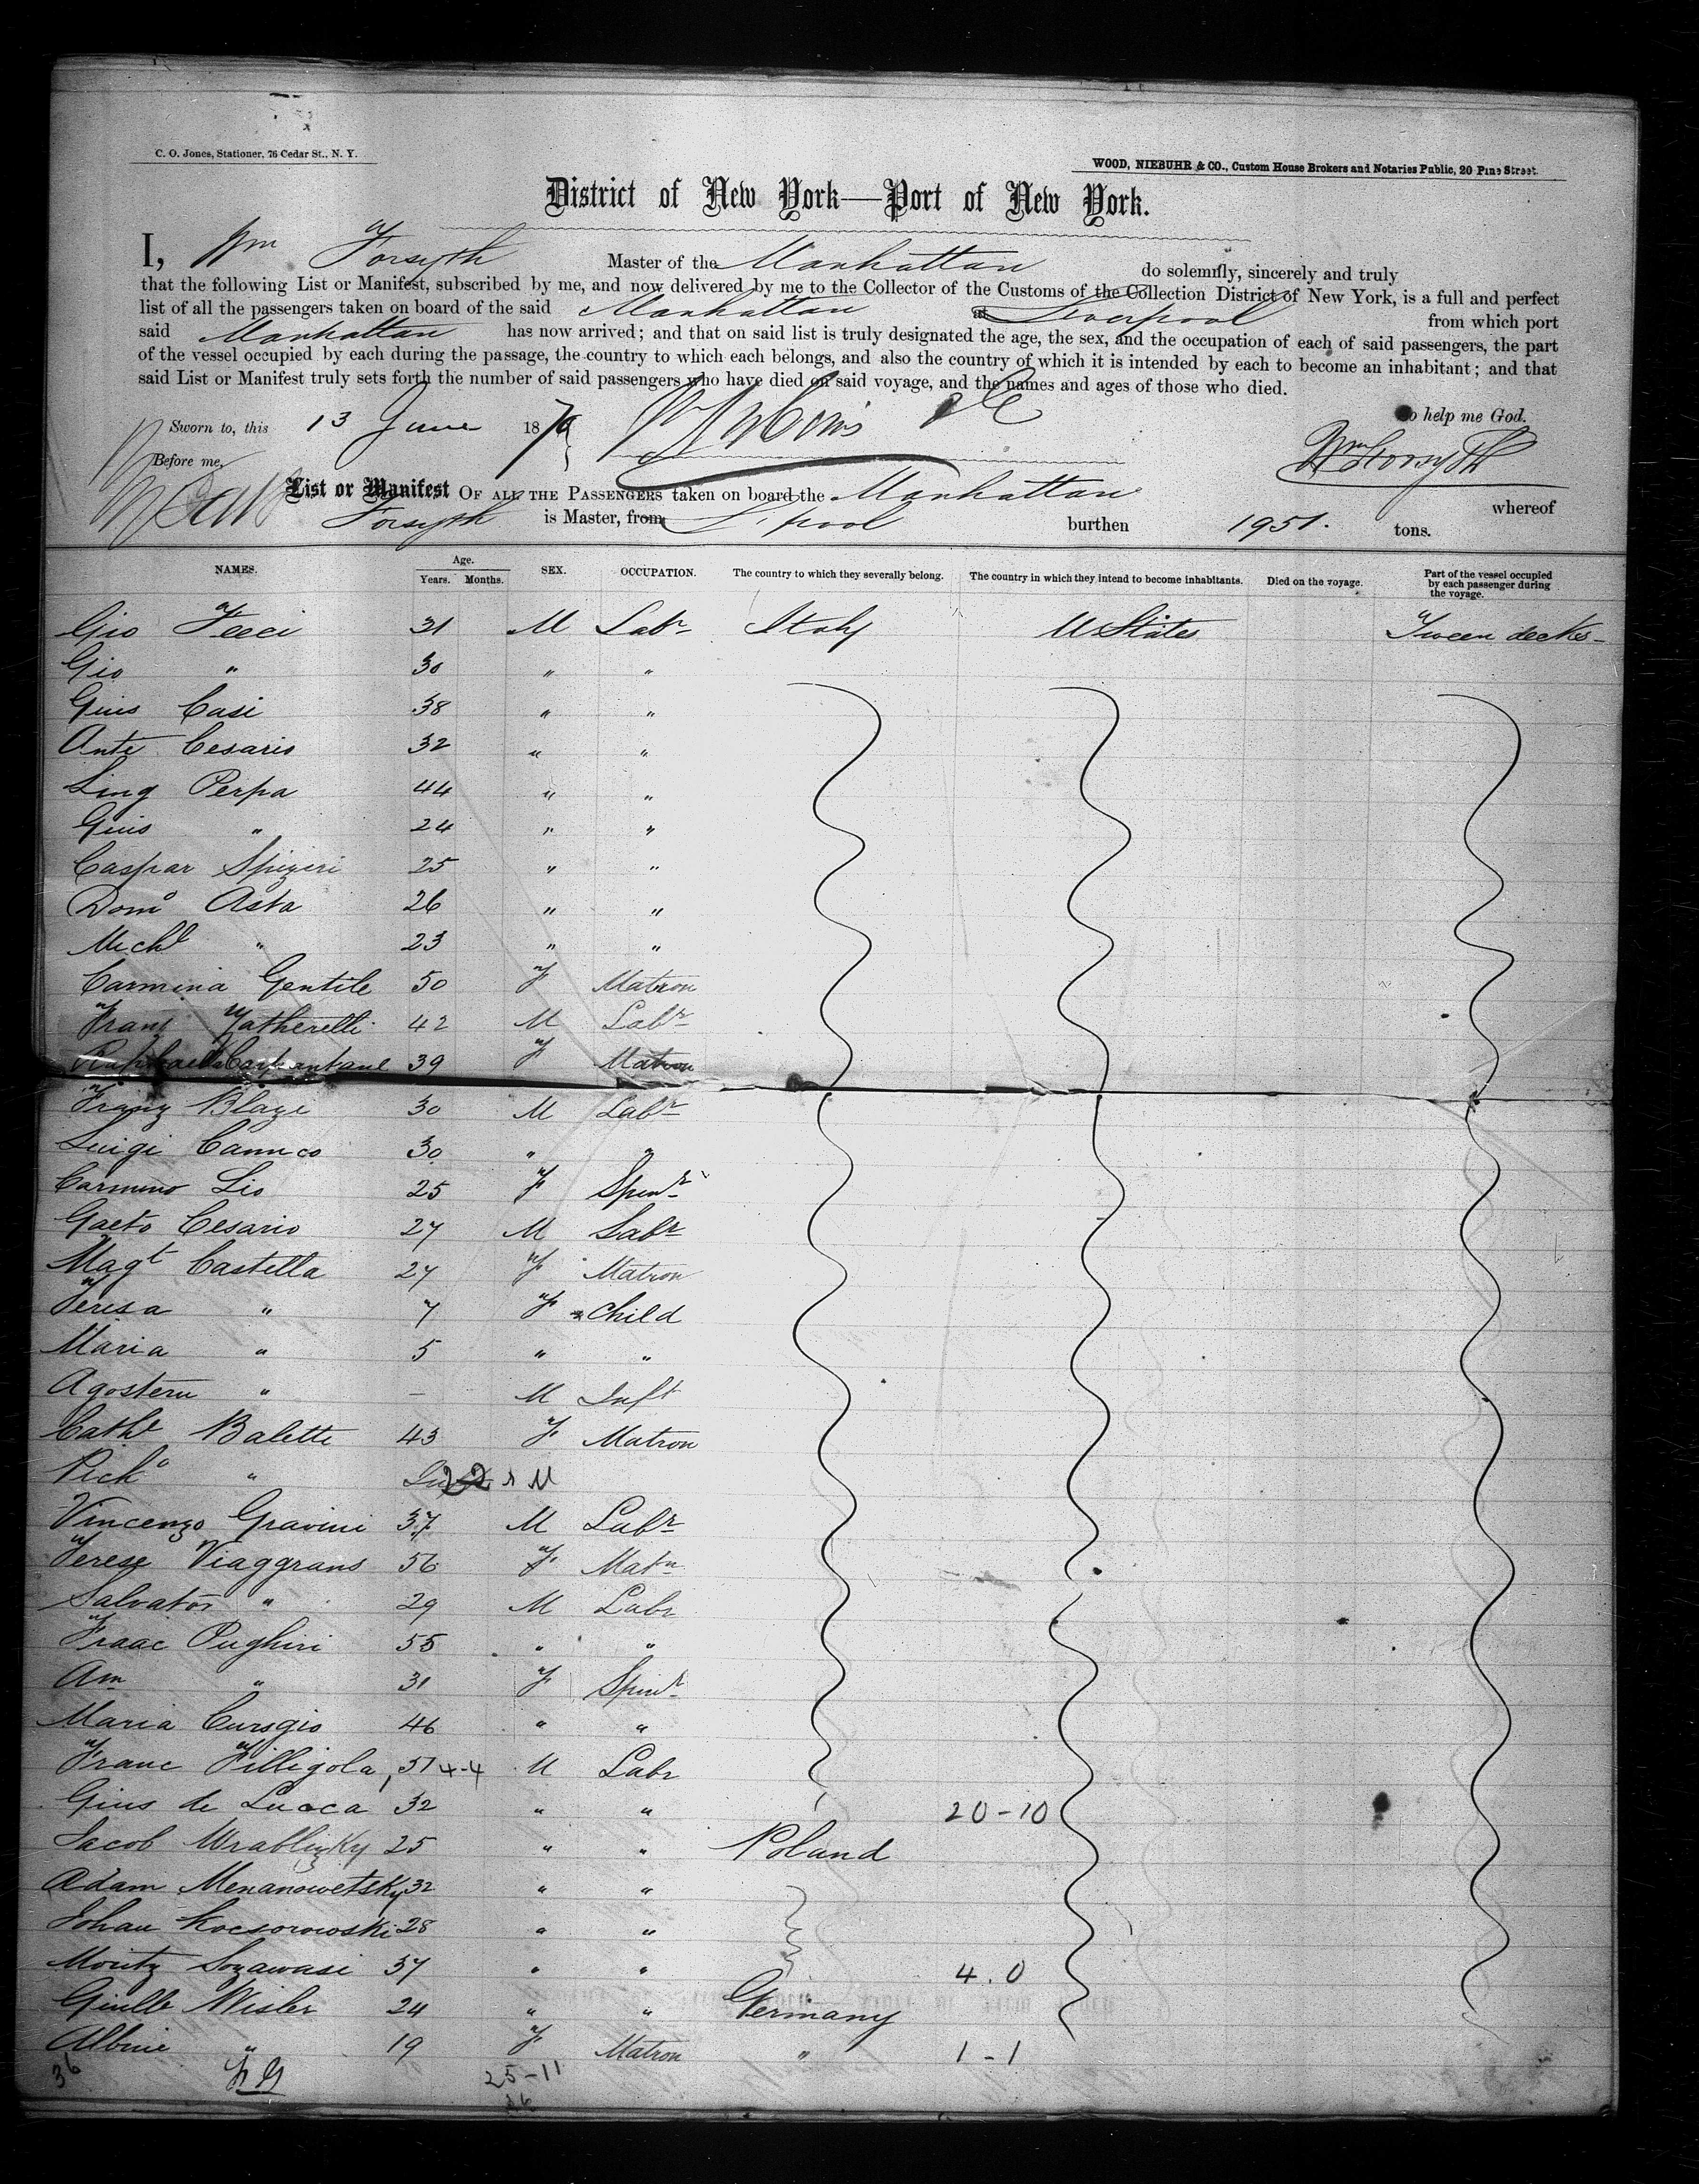 C. O. Jones, Stationer, 76 Cedar St., N. Y.
WOOD, NIEBUHR & CO., Custom House Brokers and Notaries Public, 20 Pine Street.
District of New York—Port of New York.
I, Wm Forsyth Master of the Manhattan do solemnly, sincerely and truly
that the following List or Manifest, subscribed by me, and now delivered by me to the Collector of the Customs of the Collection District of New York, is a full and perfect
list of all the passengers taken on board of the said Manhattan at Liverpool from which port
said Manhattan has now arrived; and that on said list is truly designated the age, the sex, and the occupation of each of said passengers, the part
of the vessel occupied by each during the passage, the country to which each belongs, and also the country of which it is intended by each to become an inhabitant; and that
said List or Manifest truly sets forth the number of said passengers who have died on said voyage, and the names and ages of those who died.
So help me God.
Sworn to, this 13 June 1879
Wm Forsyth
Before me,
List or Manifest OF ALL THE PASSENGERS taken on board the Manhattan whereof
Forsyth is Master, from L'pool burthen 1951. tons.
NAMES. Age. Years. Months. SEX. OCCUPATION. The country to which they severally belong. The country in which they intend to become inhabitants. Died on the voyage. Part of the vessel occupied by each passenger during the voyage.
Gio Fecci 31 M Labr Italy U States Tween decks
Gio " 30 " "
Gius Casi 38 " "
Anto Cesario 32 " "
Ling Perpa 44 " "
Gius " 24 " "
Caspar Spizeri 25 " "
Domo Asta 26 " "
Michl " 23 " "
Carmina Gentile 50 F Matron
Frans Matherelli 42 M Labr
Raphaella 39 F Matron
Franz Blaze 30 M Labr
Luigi 30 " "
Carmino Lio 25 F Spinr
Gaeto Cesario 27 M Labr
Magt Castella 27 F Matron
Teresa " 7 F Child
Maria " 5 " "
Agosteru " — M Inft
Cathe Balette 43 F Matron
Richo " 22 M
Vincenzo Gravini 37 M Labr
Terese Viaggrans 56 F Matn
Salvator " 29 M Labr
Fraac Pughiri 55 " "
Am " 31 F Spinr
Maria Cursgio 46 " "
Franc Filligola, 51 4-4 M Labr
Gius de Lucca 32 " " 20-10
Jacob Wrablizky 25 " " Poland
Adam Menanowetsky 32 " "
Johan Kocsorowski 28 " "
Moritz Sozawasi 37 " " 4.0
Giulle Wisler 24 " " Germany
Albine " 19 F Matron " 1-1
36 25-11
36